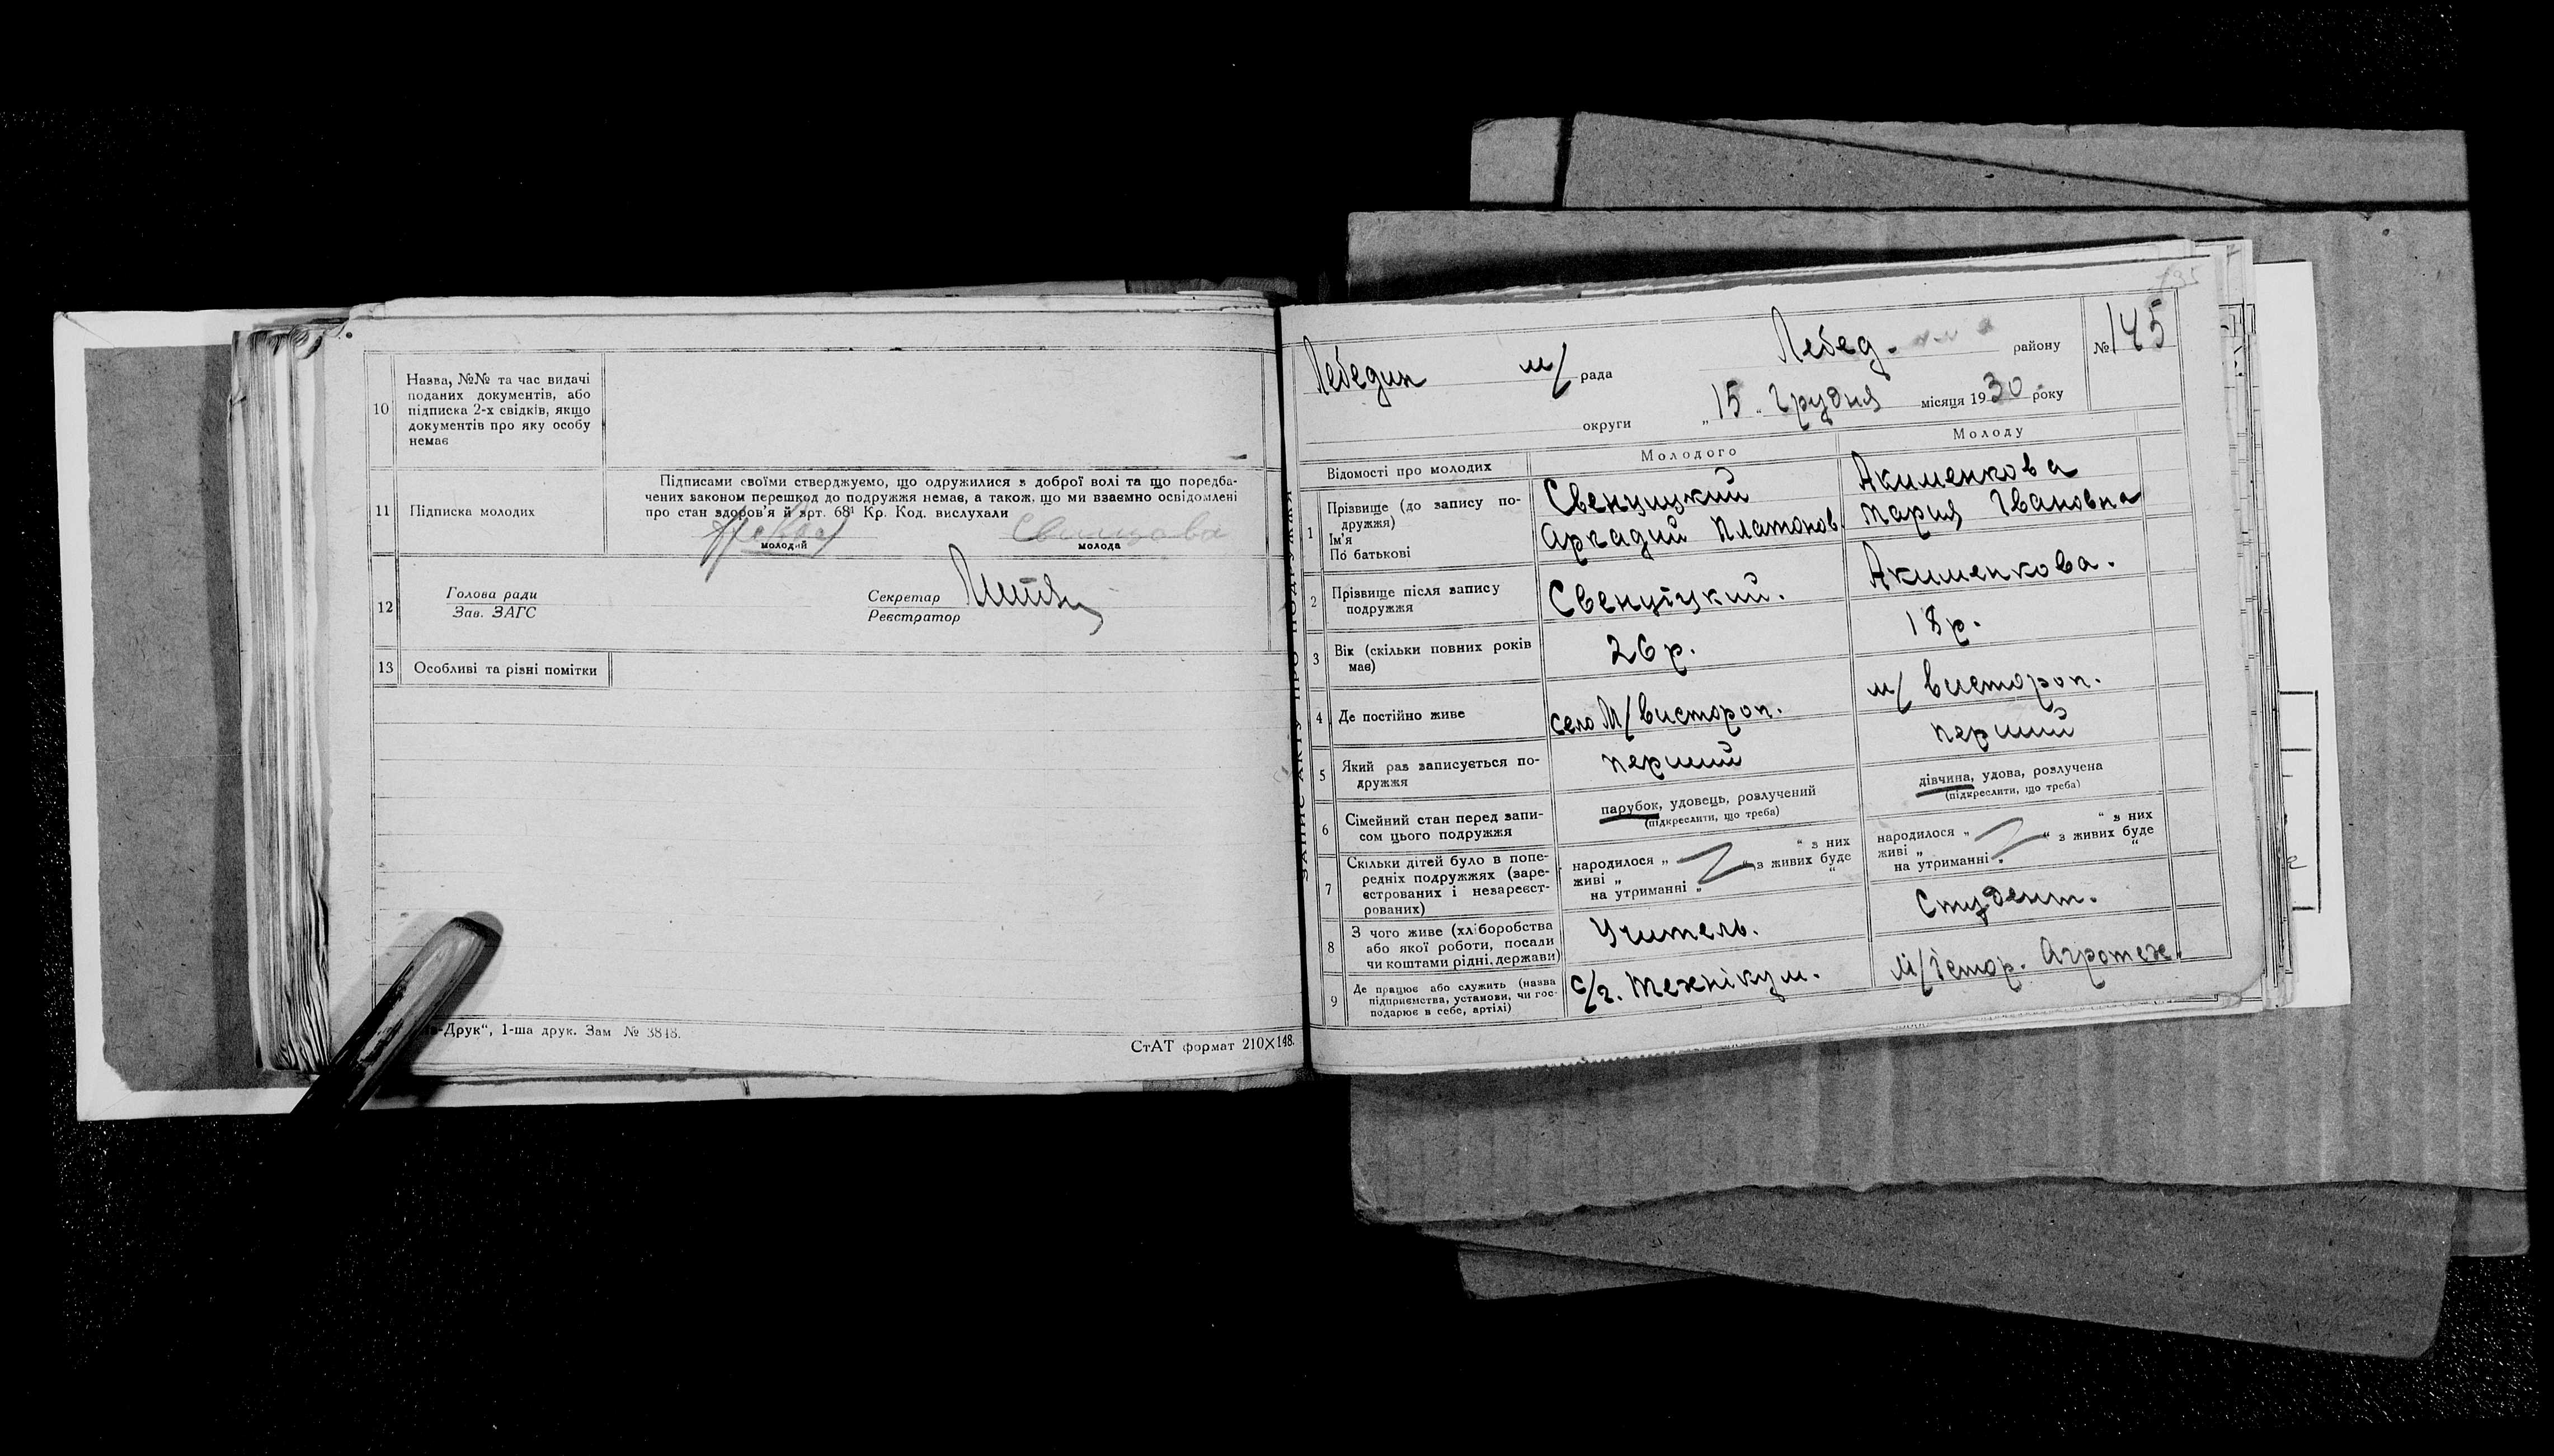 10
Назва, №№ та час видачі
поданих документів, або
підписка 2-х свідків, якщо
документів про яку особу
немає
11
Підписка молодих
Підписами своїми стверджуємо, що одружилися з доброї волі та що поредба-
чених законом перешкод до подружжя немає, а також, що ми взаємно освідомлені
про стан здоров'я й арт. 68¹ Кр. Код. вислухали
молодий
молода
12
Голова ради
Зав. ЗАГС
Секретар
Реєстратор
13
Особливі та різні помітки
-Друк“, 1-ша друк. Зам № 3848.
СтАТ формат 210×148.
ЗАПИС АКТУ ПРО ПОДРУЖЖЯ
Лебедин м/ рада Лебед. району № 145
округи „15“ Грудня місяця 1930 року
Відомості про молодих Молодого Молоду
1
Прізвище (до запису по-
дружжя)
Ім'я
По батькові
Свенціцкий
Аркадий Платонов.
Акименкова
Мария Івановна
2
Прізвище після запису
подружжя
Свенціцкий.
Акименкова.
3
Вік (скільки повних років
має)
26 р.
18 р.
4
Де постійно живе
село М/Вистороп.
м/ Вистороп.
5
Який раз записується по-
дружжя
перший
перший
6
Сімейний стан перед запи-
сом цього подружжя
парубок, удовець, розлучений
(підкреслити, що треба)
дівчина, удова, розлучена
(підкреслити, що треба)
7
Скільки дітей було в попе-
редніх подружжях (заре-
єстрованих і незареєст-
рованих)
народилося „ “ з них
живі „ “ з живих буде
на утриманні „ “
народилося „ “ з них
живі „ “ з живих буде
на утриманні „ “
8
З чого живе (хліборобства
або якої роботи, посади
чи коштами рідні, держави)
Учитель.
Студент.
9
Де працює або служить (назва
підприємства, установи, чи гос-
подарює в себе, артілі)
с/г. Технікум.
Агротех.